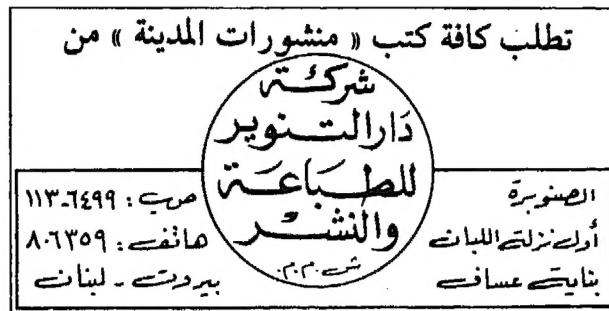 تطلب كافة كتب « منشورات المدينة » من
شركة
دار التنوير
للطباعة
والنشر
ش.م.م.
الصنوبرة
أول نزلة اللبان
بناية عساف
ص.ب : ٦٤٩٩-١١٣
هاتف : ٨٠٦٣٥٩
بيروت - لبنان